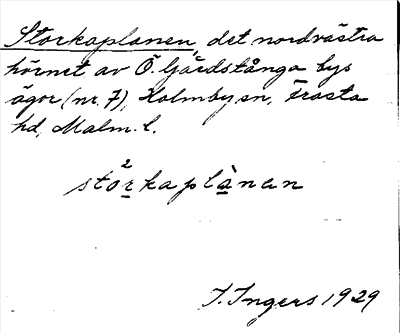 Storkaplanen, det nordvästra
hörnet av Ö. Gårdstånga bys
ägor (nr. 7), Holmby sn, Frosta
hd, Malm. l.
2
storkaplànen
I. Ingers 1929